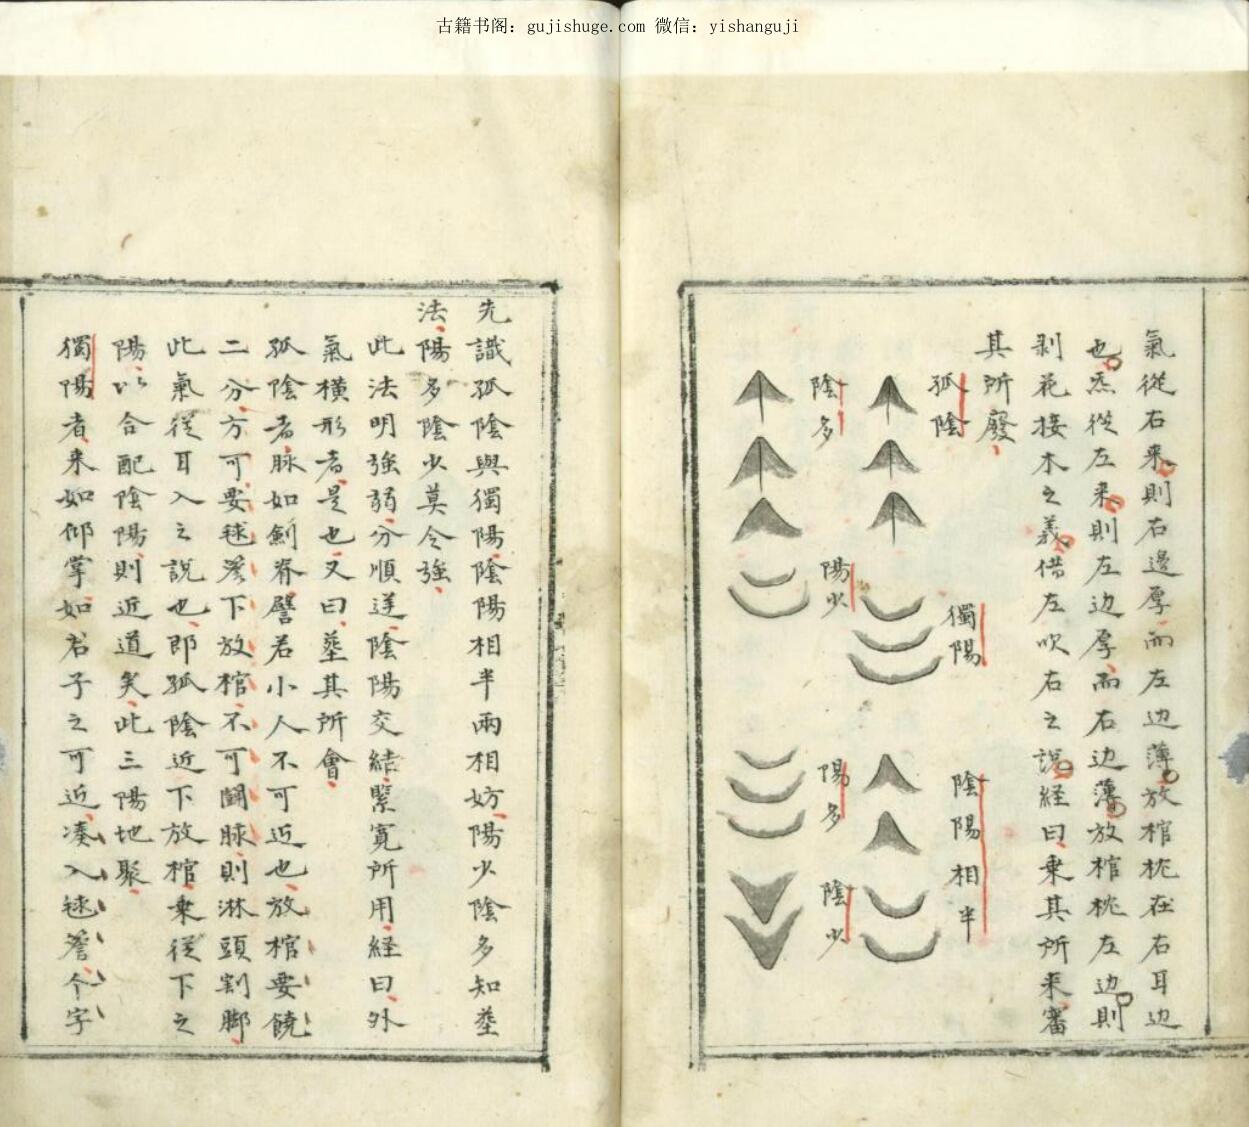 古籍书阁：gujishuge.com 微信：yishanguji
氣從右来則右邊厚而左边薄放棺枕在右耳边
也炁從左来則左边厚而右边薄放棺枕左边則
剥花接木之義借左吹右之説経曰乗其所来審
其所廢
孤陰
獨陽
陰陽相半
陰多
陽少
陽多
陰少
先識孤陰與獨陽陰陽相半兩相妨陽少陰多知塟
法陽多陰少莫令強
此法明強弱分順逆陰陽交結緊寛所用経曰外
氣横形者是也又曰塟其所會
孤陰者脉如劍脊譬若小人不可近也放棺要饒
二分方可要毬簷下放棺不可鬪脉則淋頭割脚
此氣従耳入之説也即孤陰近下放棺乗従下之
陽以合配陰陽則近道矣此三陽地聚
獨陽者来如仰掌如君子之可近凑入毬簷个字